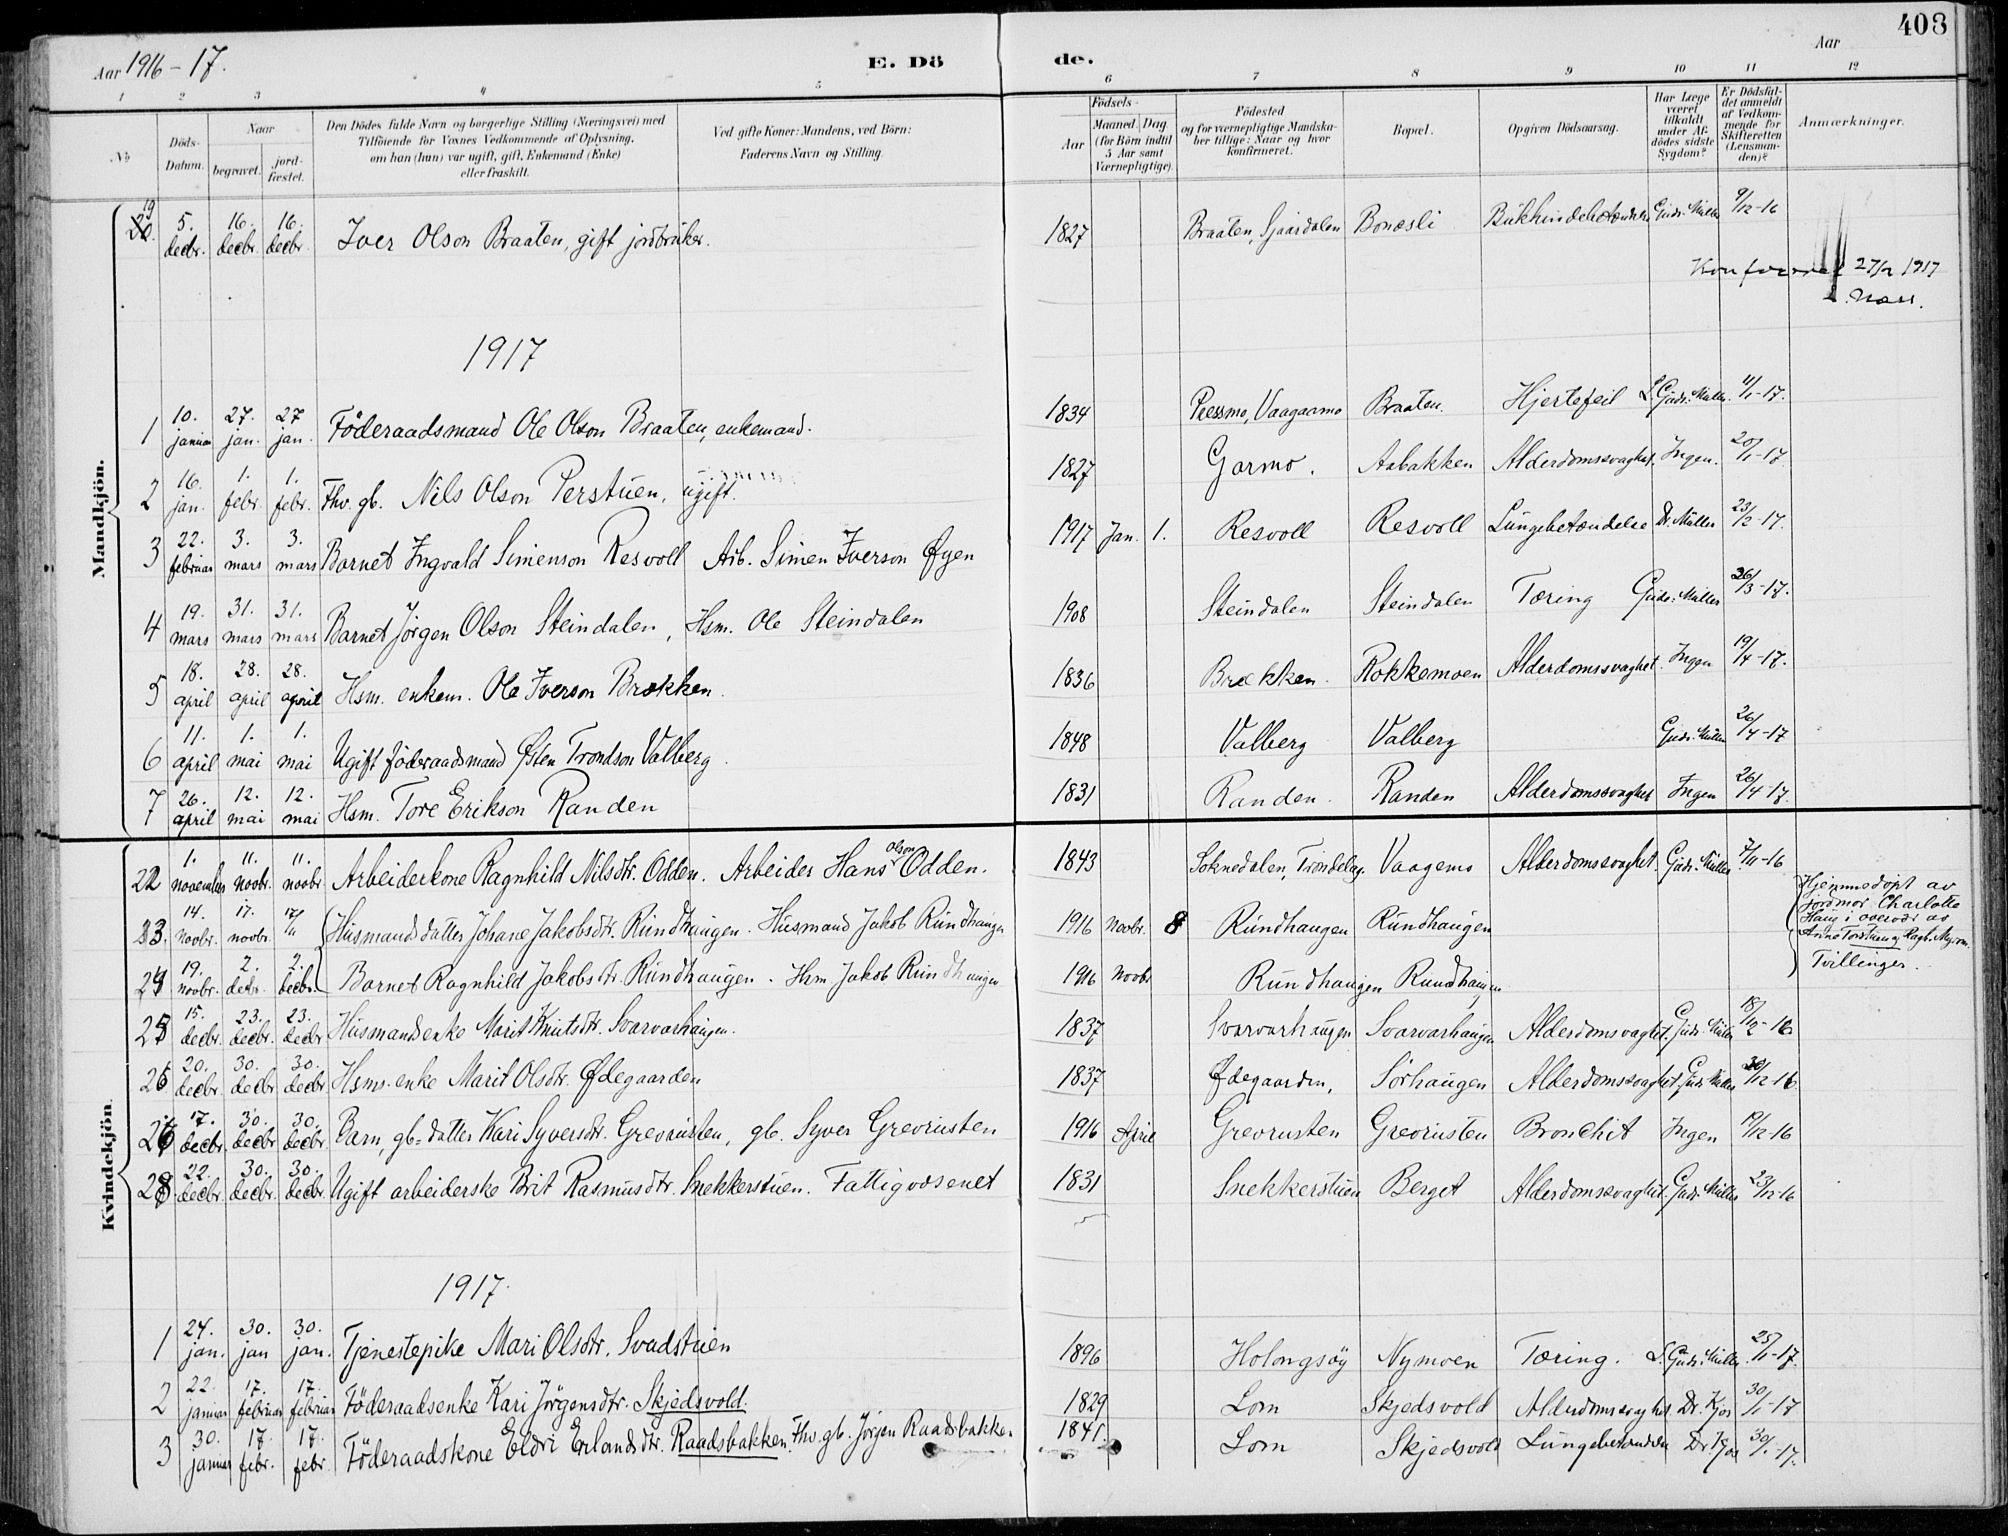 408
Aar 1916-17.
E. Dö
de.
Aar
1 2 3 4 5 6 7 8 9 10 11 12
No
Döds-Datum.
Naar
begravet.
jord-fæstet.
Den Dödes fulde Navn og borgerlige Stilling (Næringsvei) med
Tilföiende for Voxnes Vedkommende af Oplysning,
om han (hun) var ugift, gift, Enkemand (Enke)
eller fraskilt.
Ved gifte Koner: Mandens, ved Börn:
Faderens Navn og Stilling.
Födsels-
Aar
Maaned. Dag.
(for Börn indtil
5 Aar samt
Værnepligtige).
Födested
og for værnepligtige Mandska-
ber tillige: Naar og hvor
konfirmeret.
Bopæl.
Opgiven Dödsaarsag.
Har Læge
været
tilkaldt
under Af-
dödes sidste
Sygdom?
Er Dödsfal-
det anmeldt
af Vedkom-
mende for
Skifteretten
(Lensman-
den)?
Anmærkninger.
Mandkjön.
19 20. 5. decbr. 16. decbr. 16. decbr. Iver Olson Braaten, gift jordbruker. 1827 Braaten, Sjaardalen Bonæsli Bukhindebetændelse Gudr. Müller 9/12-16
27/2 1917
1917
1 10. januar 27. jan. 27 jan. Föderaadsmand Ole Olson Braaten, enkemand. 1834 Vaagaamo Braaten. Hjertefeil L. Gudr. Müller. 11/1-17.
2 16. jan. 1. febr. 1. febr. Fhv. gb. Nils Olson Perstuen, ugift. 1827 Garmo. Aabakken Alderdomssvaghet. Ingen. 20/1-17
3 22. februar 3. mars 3. mars Barnet Ingvald Simenson Resvoll Arb. Simen Iverson Øyen 1917 Jan. 1. Resvoll Resvoll Lungebetændelse Dr. Müller 23/2-17.
4 19. mars 31. mars 31. mars Barnet Jörgen Olson Steindalen, Hsm. Ole Steindalen 1908 Steindalen Steindalen Tæring Gudr. Müller 26/3-17.
5 18. april 28. april 28. april Hsm. enkem. Ole Iverson Brækken. 1836 Brækken. Rokkemoen Alderdomssvaghet. Ingen 19/4-17.
6 11. april 1. mai 1. mai Ugift föderaadsmand Østen Trondson Valberg. 1848 Valberg Valberg Gudr. Müller 26/4-17
7 26. april 12. mai 12. mai Hsm. Tore Erikson Randen 1831 Randen. Randen Alderdomssvaghet Ingen 26/4-17.
Kvindekjön.
22 1. november 11. novbr. 11. novbr. Arbeiderkone Ragnhild Nilsdtr. Odden. Arbeider Hans Olson Odden. 1843 Soknedalen, Trøndelag. Vaagemo Alderdomssvaghet. Gudr. Müller. 7/11-16
23. 14. novbr. 17. novbr. 17/11 Husmandsdatter Johane Jakobsdtr. Rundhaugen. Husmand Jakob Rundhaugen 1916 Novbr. 8 Rundhaugen Rundhaugen Hjemmedöpt av
jordmor Charlotte
Haug i overvær av
Anne Torstuen og Ragh. Myrom.
24 19. novbr. 2. decbr. 2. decbr. Barnet Ragnhild Jakobsdtr. Rundhaugen. Hsm Jakob Rundhaugen 1916 Novbr Rundhaugen Rundhaugen Tvillinger.
25 15. decbr. 23. decbr. 23. decbr Husmandsenke Marit Knutsdtr. Svarvarhaugen. 1837 Svarvarhaugen Svarvarhaugen Alderdomsvaghet. Gudr. Müller 18/12-16
26 20. decbr. 30. decbr 30. decbr. Hsms. enke Marit Olsdtr. Ødegaarden 1837 Ødegaarden, Sörhaugen Alderdomssvaghet. Gudr. Müller 30/12-16.
27 17. decbr. 30. decbr 30. decbr. Barn, gb.-datter Kari Syversdtr. Grevrusten, gb. Syver Grevrusten 1916 April Grevrusten Grevrusten Bronchit Ingen 19/12-16
28 22. decbr. 30. decbr. 30. decbr. Ugift arbeiderske Brit Rasmusdtr. Snekkerstuen. Fattigvæsenet 1831 Snekkerstuen Berget Alderdomssvaghet. Gudr. Müller 23/12-16
1917.
1 24. jan. 30. jan 30. jan. Tjenestepike Mari Olsdtr. Svadstuen 1896 Holongsöy Nymoen Tæring. L. Gudr. Müller. 25/1-17.
2 22. januar 17. februar 17. februar Föderaadsenke Kari Jörgensdtr. Skjedsvold. 1829 Lom Skjedsvold Alderdomssvaghet Dr. Kjos 30/1-17
3 30. januar 17. febr. 17. febr. Föderaadskone Eldri Erlandsdtr. Raadsbakken. Fhv. gb. Jörgen Raadsbakken 1841. Lom Skjedsvold Lungebetændelse Dr. Kjos 30/1-17.